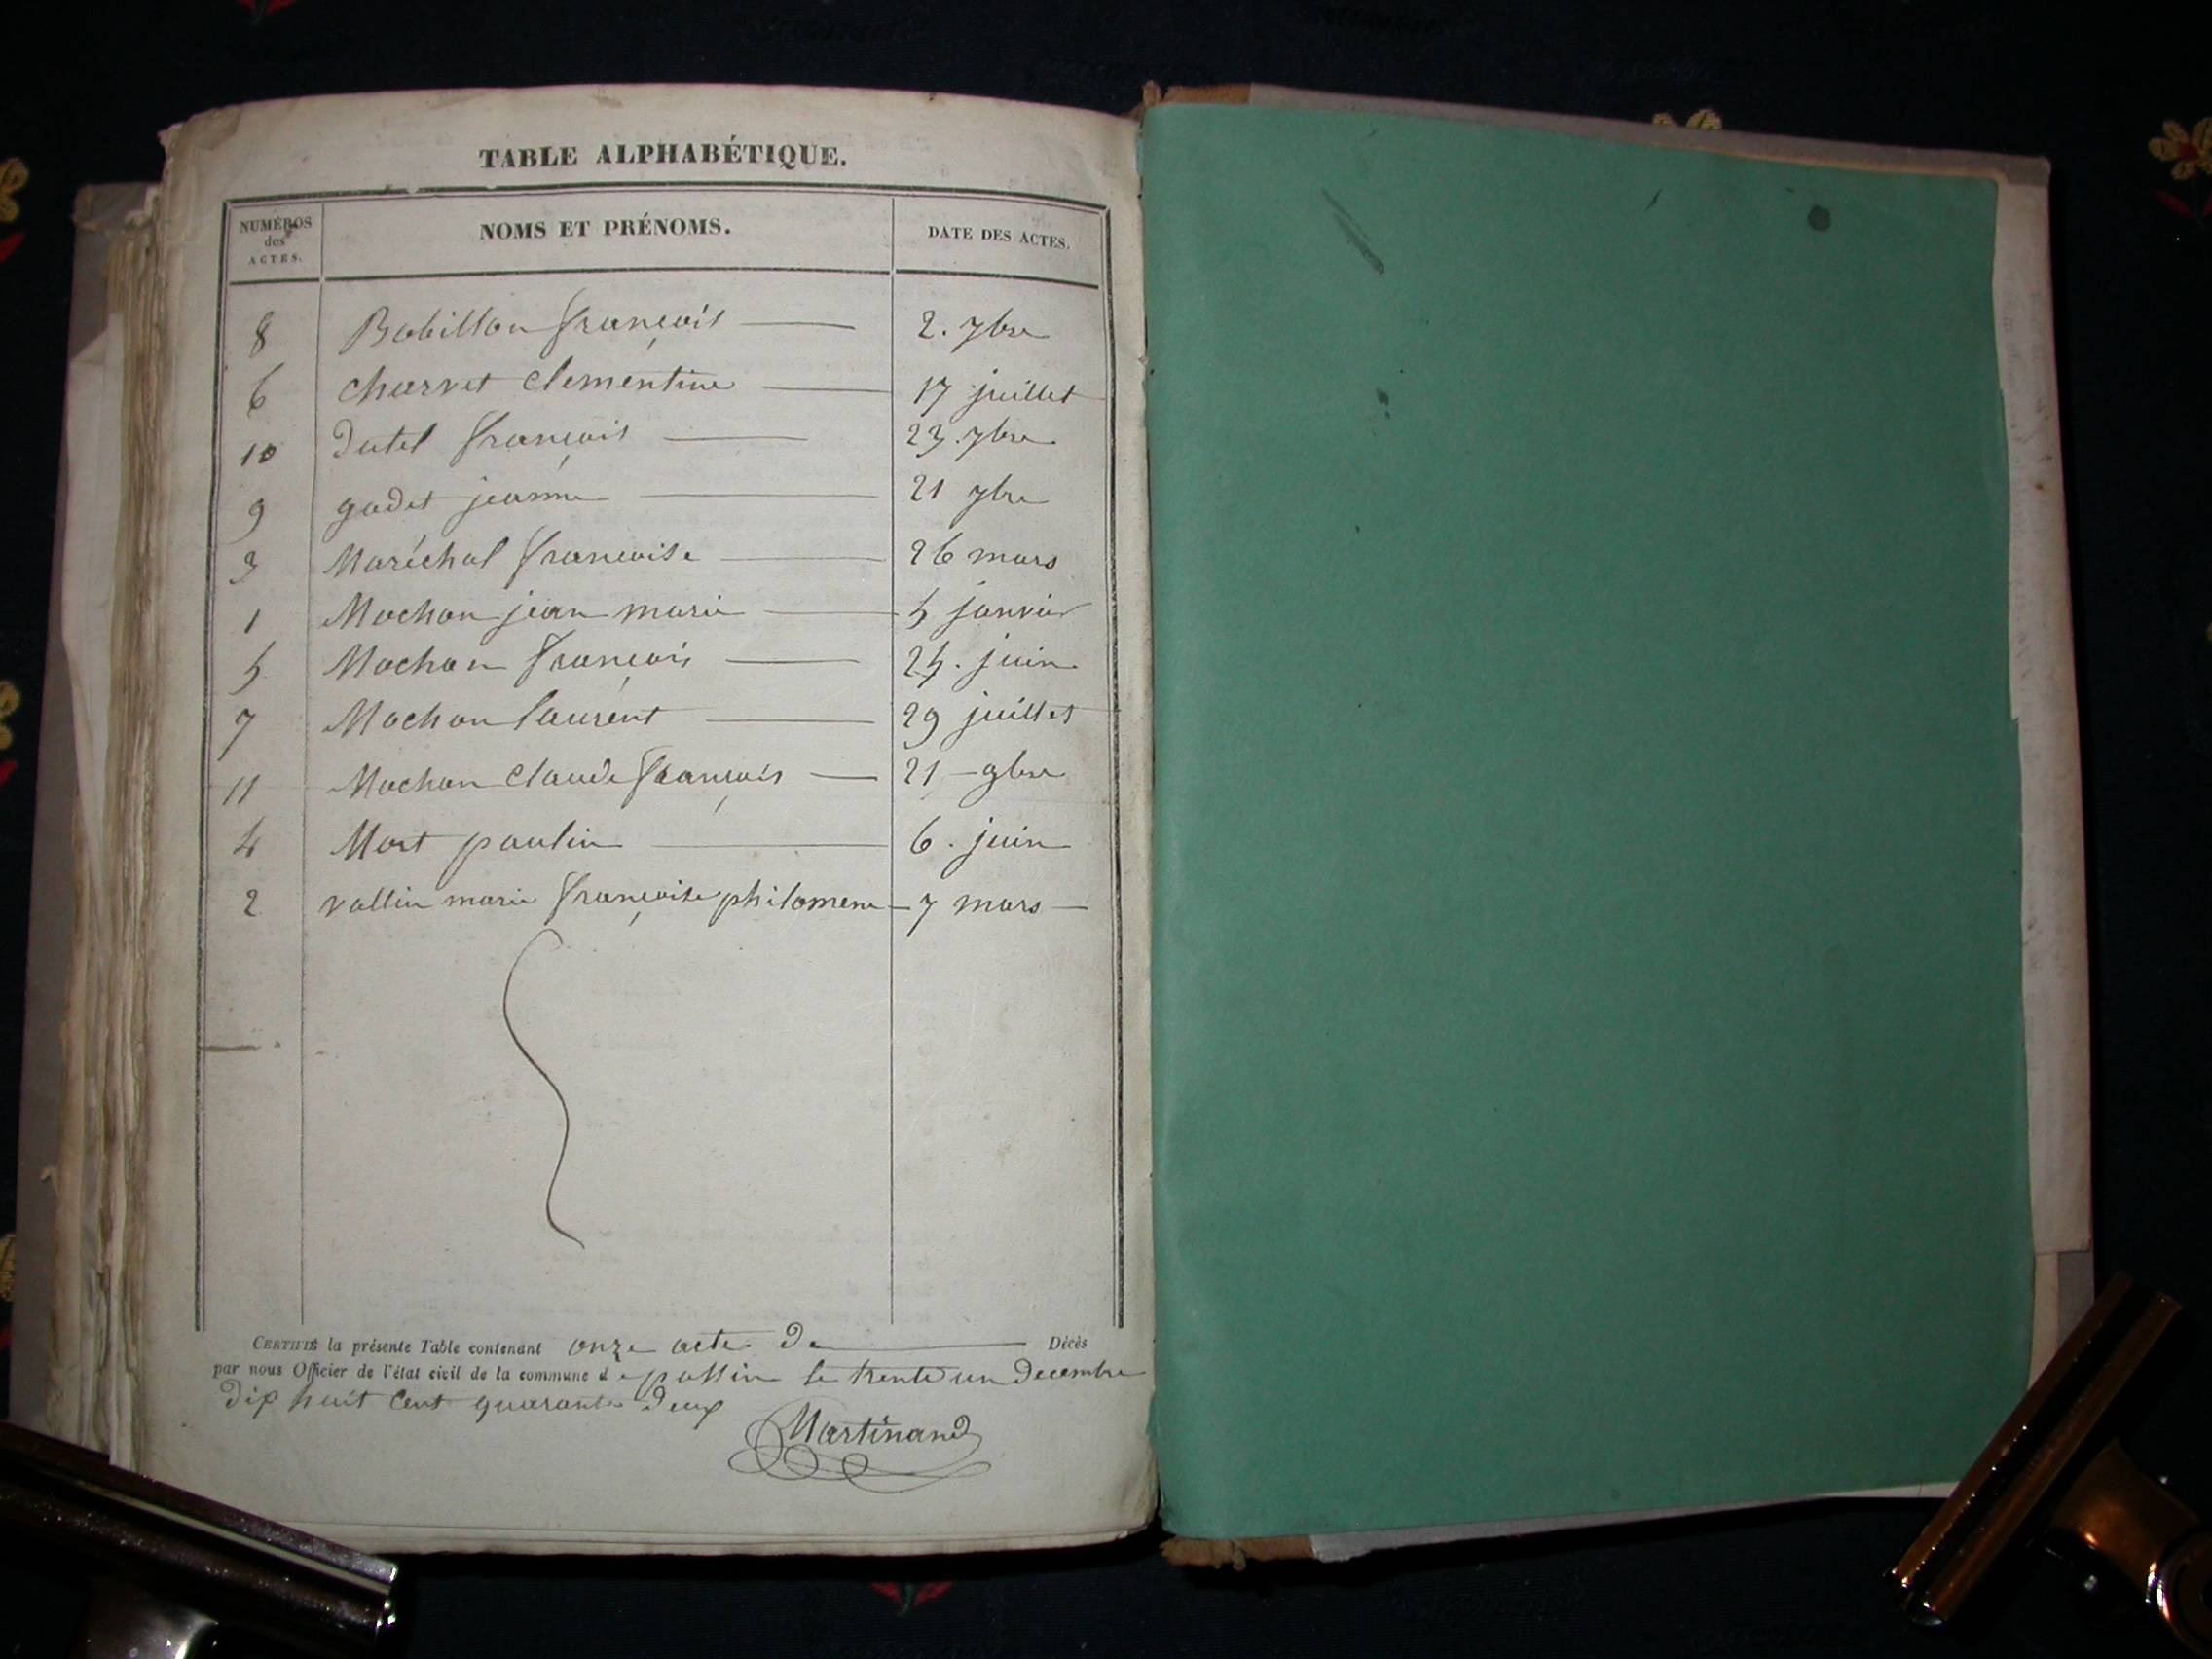 TABLE ALPHABÉTIQUE.
NUMÉROS des ACTES. NOMS ET PRÉNOMS. DATE DES ACTES.
8 Bobillon françois 2. 7bre
6 Charvet Clementine 17 juillet
10 Dutel françois 23. 7bre
9 godet jeanne 21 7bre
3 Maréchal francoise 26 mars
1 Mochon jean marie 5 janvier
5 Mochon françois 25. juin
7 Mochon laurent 29 juillet
11 Mochon Claude françois 21 - 9bre
4 Mort paulin 6. juin
2 vallin marie françoise philomene 7 mars
CERTIFIÉ la présente Table contenant onze acte de Décès
par nous Officier de l'état civil de la commune de passin le trente un decembre
dix huit cent quarante deux
Martinand